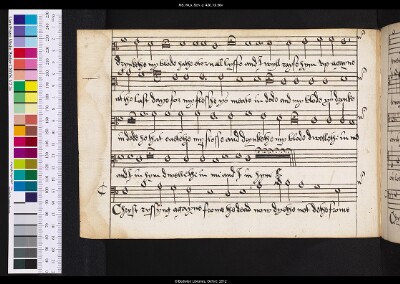 drynkethe my blode hathe eternall lyffe and I wyll rayse hym up agayne
at the last daye for my flesshe ys meate in dede and my blode ys drynke
in dede he that eatethe my flesse and drynkethe my blode dwellethe in me
and I in hym dwellethe in me and I in hym
Chryst ryssyng agayne frome the dead now dyethe not dethe frome
© Bodleian Libraries, Oxford, 2012